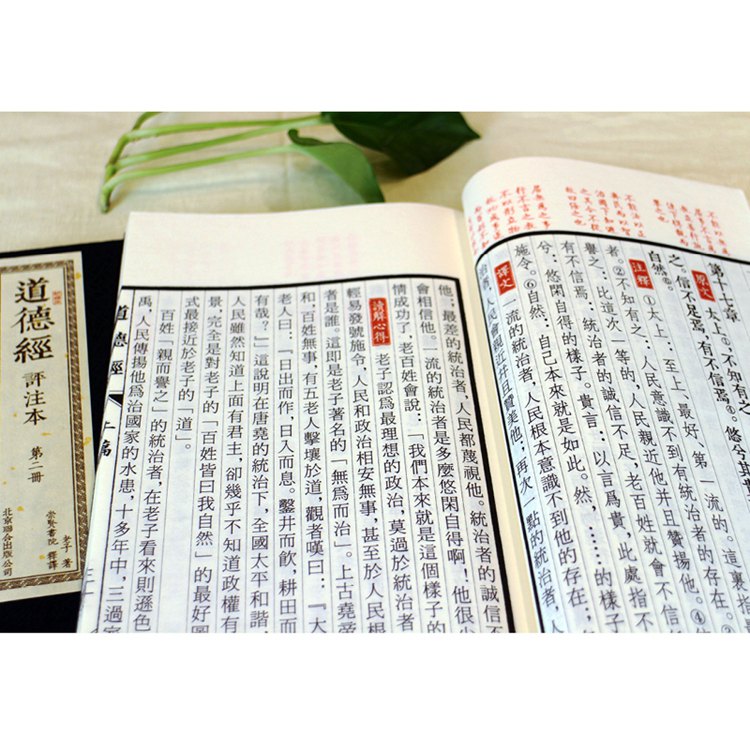 第十七章
原文 太上①，不知有之
之。信不足焉，有不信焉。④悠兮其貴
自然。⑥
注釋 ①太上：至上、最好，第一流的。
者。②不知有之：人民意識不到有統治者的存在。③
譽之：比這次一等的，人民親近他并且贊揚他。④
有不信焉：統治者的誠信不足，老百姓就會不信
兮：悠閑自得的樣子。貴言：以言爲貴，此處指
施令。⑥自然：自己本來就是如此。然，……的樣子
譯文 一流的統治者，人民根本意識不到他的存在，
治者，人民會親近并且贊美他；再次一點的統治者，人
他；最差的統治者，人民都蔑視他。統治者的誠信不
會相信他。一流的統治者是多麼悠閑自得啊！他很少
情成功了，老百姓會說：「我們本來就是這個樣子的
讀解心得 老子認爲最理想的政治，莫過於統治者
輕易發號施令，人民和政治相安無事，甚至於人民根
者是誰。這即是老子著名的「無爲而治」。上古堯帝
和，百姓無事，有五老人擊壤於道，觀者嘆曰：『大
老人曰：『日出而作，日入而息。鑿井而飲，耕田而
有哉？』」這說明在唐堯的統治下，全國太平和諧，
人民雖然知道上面有君主，卻幾乎不知道政權有
景，完全是對老子的「百姓皆曰我自然」的最好圖
式最接近於老子的「道」。
百姓「親而譽之」的統治者，在老子看來則遜色
禹，人民傳揚他爲治國家的水患，十多年中，三過家
道德經 上篇
道德經 評注本 第二冊
老子 著
崇賢書院 釋譯
北京聯合出版公司